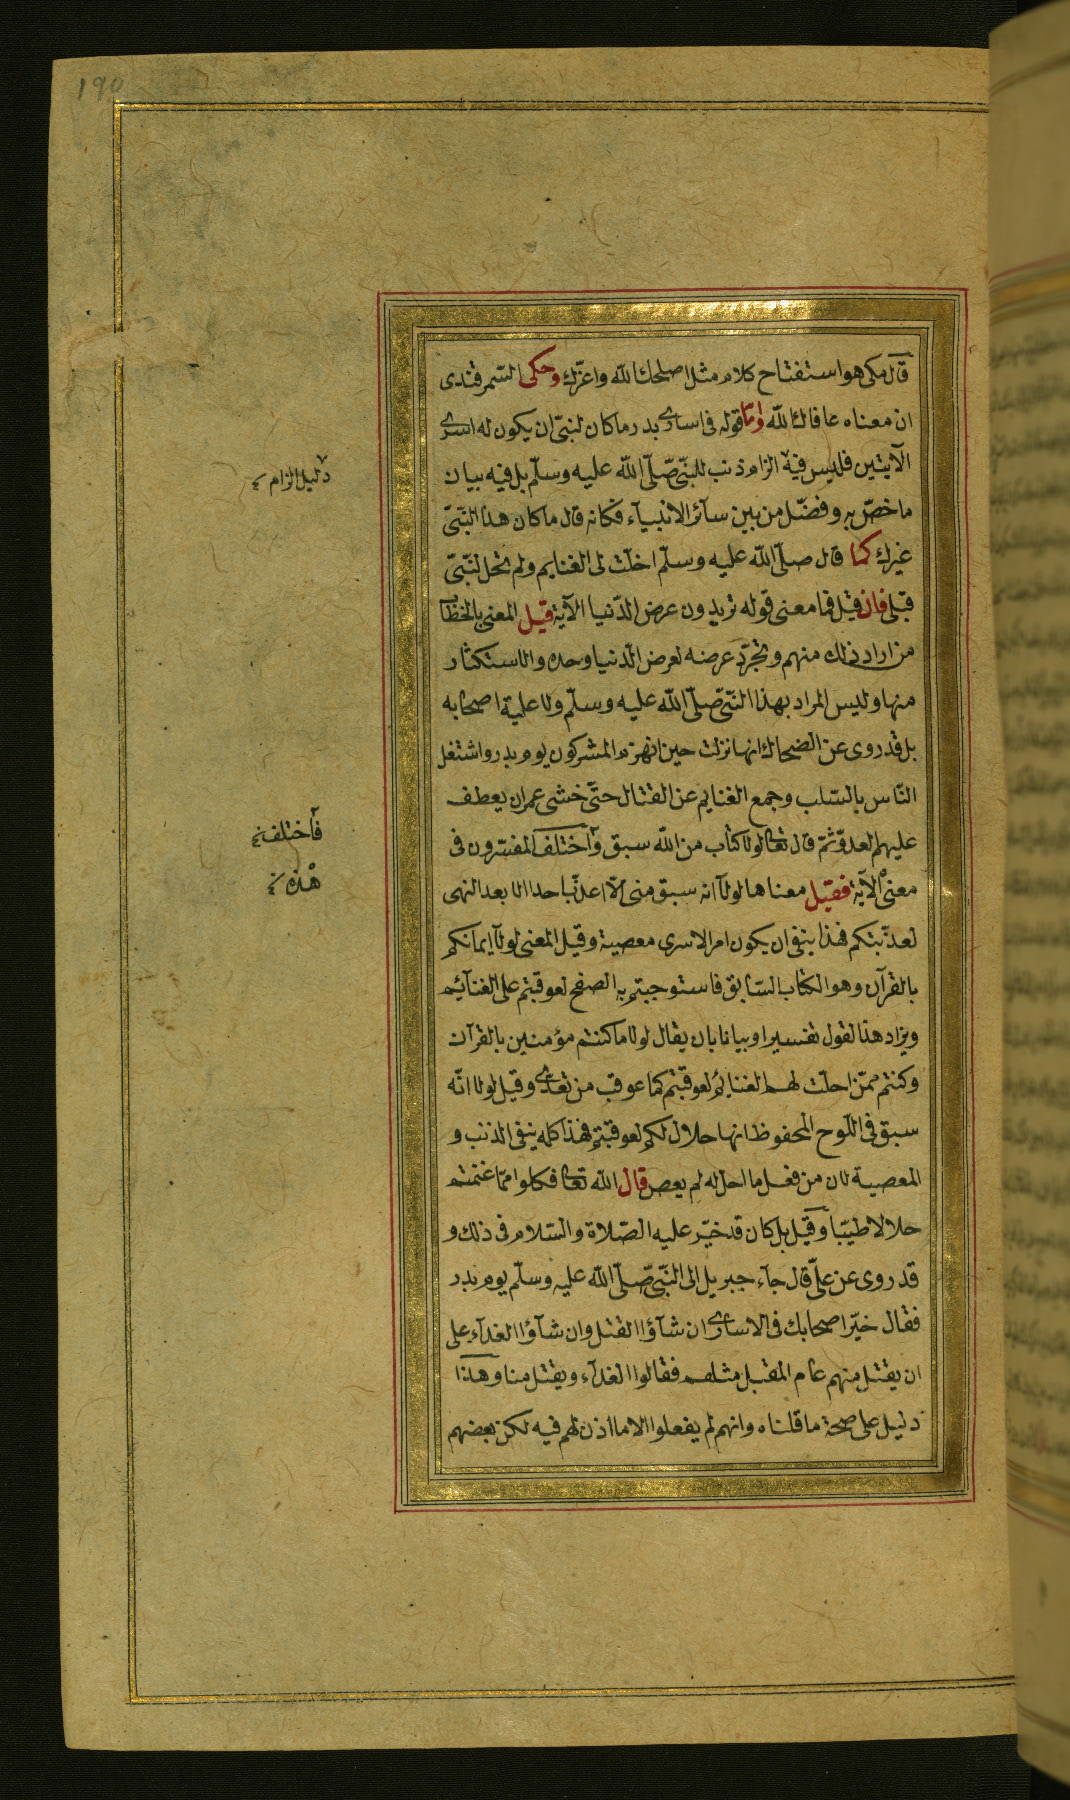 190
قال مكى هو استفتاح كلام مثل اصلحك الله واعزك وحكى السمرقندى
ان معناه عافاك الله واما قوله فى اسارى بدر ما كان لنبى ان يكون له اسرى
الآيتين فليس فيه الزام ذنب للنبى صلى الله عليه وسلم بل فيه بيان
ما خص به وفضل من بين سائر الانبياء فكانه قال ما كان هذا لنبى
غيرك كما قال صلى الله عليه وسلم احلت لى الغنايم ولم تحل لنبى
قبلى فان قيل فما معنى قوله تريدون عرض الدنيا الآية قيل المعنى بالخطاب
من اراد ذلك منهم وتجرد غرضه لعرض الدنيا وحده والاستكثار
منها وليس المراد بهذا النبى صلى الله عليه وسلم ولا علية اصحابه
بل قد روى عن الضحاك انها نزلت حين انهزم المشركون يوم بدر واشتغل
الناس بالسلب وجمع الغنايم عن القتال حتى خشى عمر ان يعطف
عليهم العدو ثم قال تعالى لولا كتاب من الله سبق واختلف المفسرون فى
معنى الآية فقيل معناها لولا انه سبق منى الا اعذب احدا الا بعد النهى
لعذبتكم فهذا ينفى ان يكون امر الاسرى معصية وقيل المعنى لولا ايمانكم
بالقرآن وهو الكتاب السابق فاستوجبتم به الصفح لعوقبتم على الغنآئم
ويزاد هذا القول تفسيرا وبيانا بان يقال لولا ما كنتم مؤمنين بالقرآن
وكنتم ممن احلت لهم الغنايم لعوقبتم كما عوقب من تعدى وقيل لولا انه
سبق فى اللوح المحفوظ انها حلال لكم لعوقبتم فهذا كله ينفى الذنب و
المعصية لان من فعل ما احل له لم يعص قال الله تعالى فكلوا مما غنمتم
حلالا طيبا وقيل بل كان قد خير عليه الصلاة والسلام فى ذلك و
قد روى عن على قال جآء جبريل الى النبى صلى الله عليه وسلم يوم بدر
فقال خير اصحابك فى الاسارى ان شآؤا القتل وان شآؤا الفدآء على
ان يقتل منهم عام المقبل مثلهم فقالوا الفدآء ويقتل منا وهذا
دليل على صحة ما قلناه وانهم لم يفعلوا الا ما اذن لهم فيه لكن بعضهم
دليل الزام
فاختلف
هذه